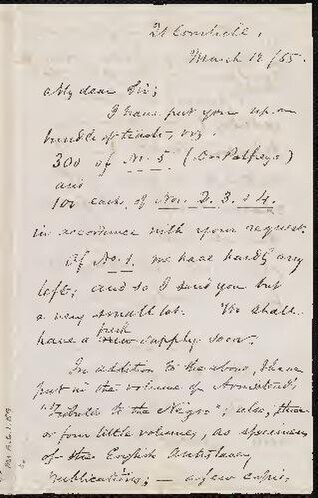 21 Cornhill,
March 12/55.
My dear Sir;
I have put you up a
bundle of tracts, viz.
300 of No. 5 (Dr Palfreys)
and
100 each of Nos. 2. 3. & 4.
in accordance with your request.
Of No. 1. we have hardly any
left; and so I send you but
a very small lot. We shall
have a new fresh supply soon.
In addition to the above, I have
put in the volume of Armistead's
"Tribute to the Negro"; also, three
or four little volumes, as specimens
of the English Antislavery
publications; — a few copies